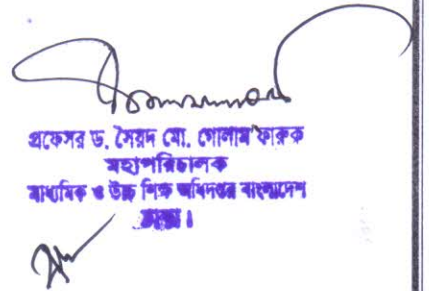 প্রফেসর ড. সৈয়দ মো. গোলাম ফারুক
মহাপরিচালক
মাধ্যমিক ও উচ্চ শিক্ষা অধিদপ্তর বাংলাদেশ
ঢাকা।